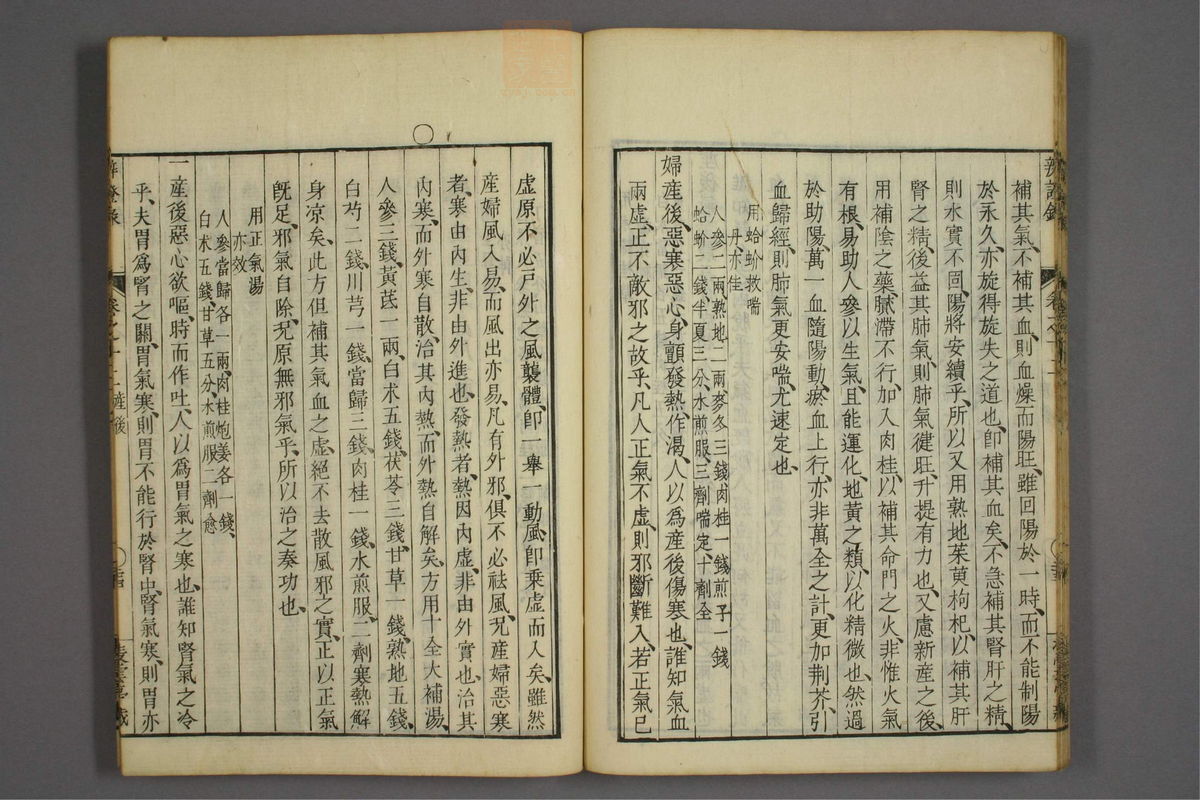 補其氣、不補其血、則血燥而陽旺、雖回陽於一時、而不能制陽
於永久、亦旋得旋失之道也、卽補其血矣、不急補其腎肝之精、
則水實不回、陽將安續乎、所以又用熟地茱萸枸杞、以補其肝
腎之精、後益其肺氣、則肺氣健旺、升提有力也、又慮新產之後、
用補陰之藥、膩滯不行、加入肉桂、以補其命門之火、非惟火氣
有根、易助人參以生氣、且能運化、地黃之類、以化精微也、然過
於助陽、萬一血隨陽動、瘀血上行、亦非萬全之計、更加荆芥、引
血歸經、則肺氣更安、喘尤速定也、
用蛤蚧救喘
丹、亦佳
人參二兩、熟地二兩、麥冬三錢肉桂一錢蘇子一錢
蛤蚧二錢、半夏三分、水煎服、三劑喘定、十劑全
婦產後、惡寒惡心、身顫發熱作渴、人以爲產後傷寒也、誰知氣血
兩虛、正不敵邪之故乎、凡人正氣不虛、則邪斷難入、若正氣已
辨證錄
虛原不必戶外之風襲體、卽一舉一動、風卽乘虛而入矣、雖然
產婦風入易、而風出亦易、凡有外邪、俱不必祛風、況產婦惡寒
者、寒由內生、非由外進也、發熱者、熱因內虛、非由外實也、治其
內寒、而外寒自散、治其內熱、而外熱自解矣、方用十全大補湯、
人參三錢黃芪一兩、白术五錢、茯苓三錢、甘草一錢、熟地五錢、
白芍二錢、川芎一錢、當歸三錢、肉桂一錢、水煎服、二劑寒熱解
身凉矣、此方但補其氣血之虛、絕不去散風邪之實、正以正氣
旣足、邪氣自除、況原無邪氣乎、所以治之奏功也、
用正氣湯
亦效
人參當歸各一兩、肉桂炮姜各一錢、
白术五錢、甘草五分、水煎服二劑愈
一產後惡心欲嘔、時而作吐、人以爲胃氣之寒也、誰知腎氣之冷
乎、夫胃爲腎之關、胃氣寒、則胃不能行於腎中、腎氣寒、則胃亦
卷之十二 產後